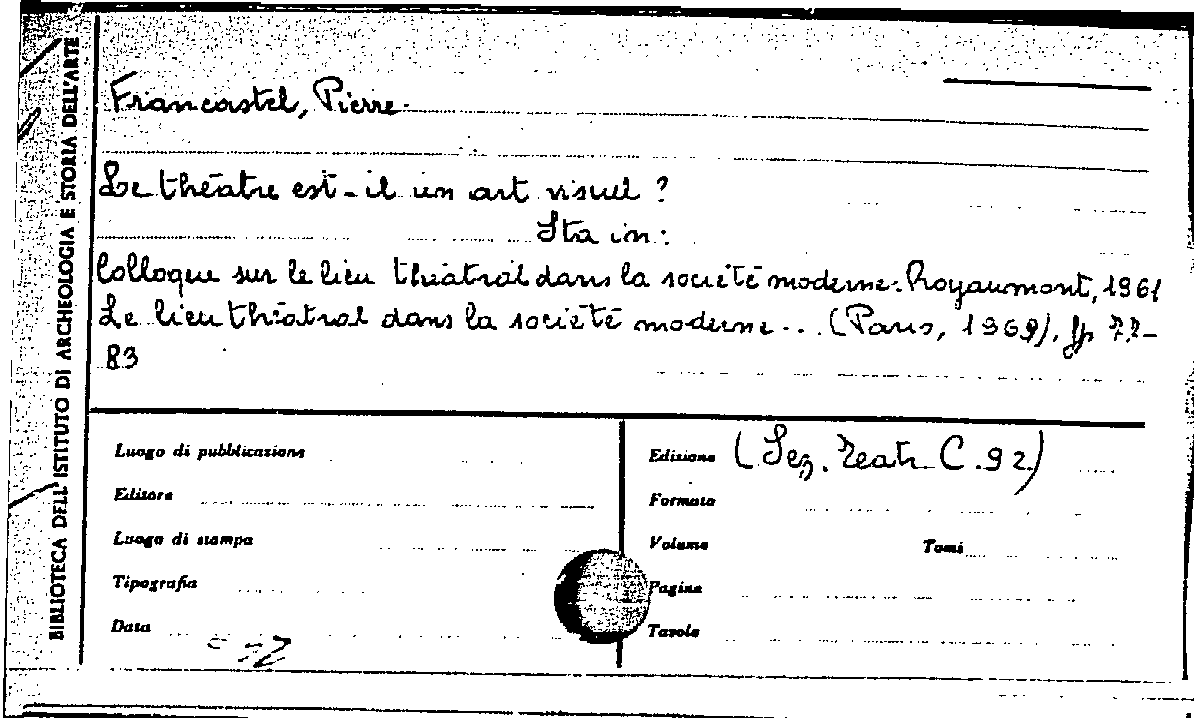 BIBLIOTECA DELL'ISTITUTO DI ARCHEOLOGIA E STORIA DELL'ARTE
Francastel, Pierre
Le théatre est-il un art visuel ?
Sta in:
Colloque sur le lieu théatral dans la société moderne. Royaumont, 1961
Le lieu théatral dans la société moderne... (Paris, 1969), pp 77-
83
Luogo di pubblicazione
Editore
Luogo di stampa
Tipografia
Data
Edizione (Sez. Teatr. C. 92)
Formato
Volume Tomi
Pagine
Tavole